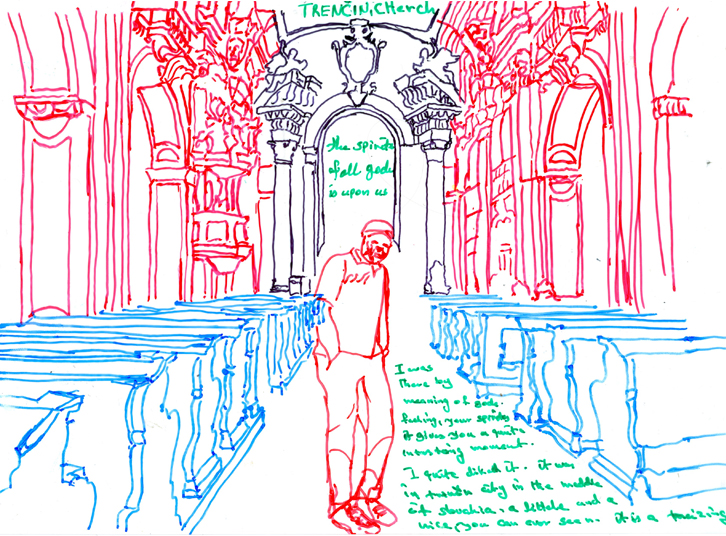 TRENČIN, CHerch
the spirits
of all gods
is upon us
I was
there by
meaning of Gods.
feeling, your spirits
it gives you a quite
interesting moment.
I quite liked it. it was
in trenčin city in the middle
of slovakia. a little and a
nice, you can ever seen. it is a